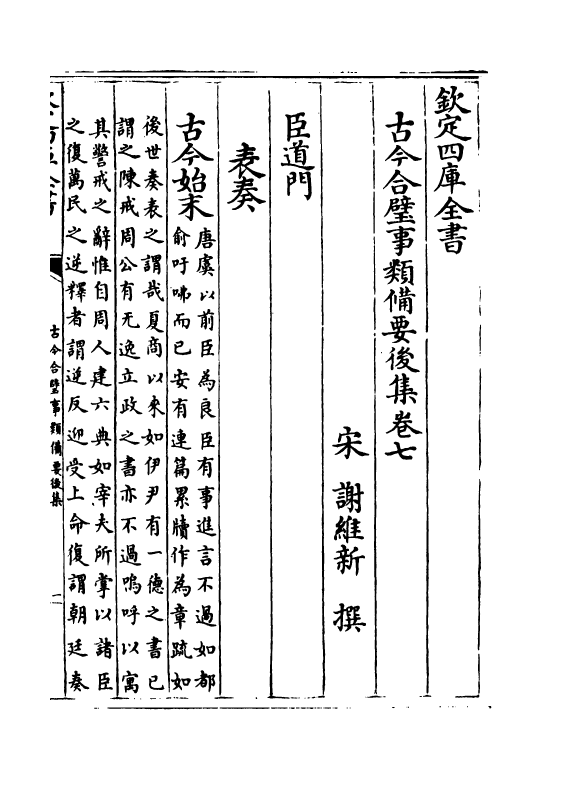 欽定四庫全書
古今合璧事類備要後集卷七
宋 謝維新 撰
臣道門
表奏
古今始末
唐虞以前臣為良臣有事進言不過如都
俞吁咈而已安有連篇累牘作為章疏如
後世奏表之謂哉夏商以來如伊尹有一德之書已
謂之陳戒周公有无逸立政之書亦不過嗚呼以寓
其警戒之辭惟自周人建六典如宰夫所掌以諸臣
之復萬民之逆釋者謂逆反迎受上命復謂朝廷奏
古今合璧事類備要後集
一